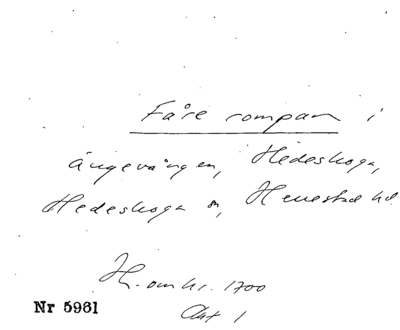 Fåre rompan i
ängevången, Hedeskoga,
Hedeskoga sn, Herrestad hd.
H. omkr. 1700
Akt 1
Nr 5961